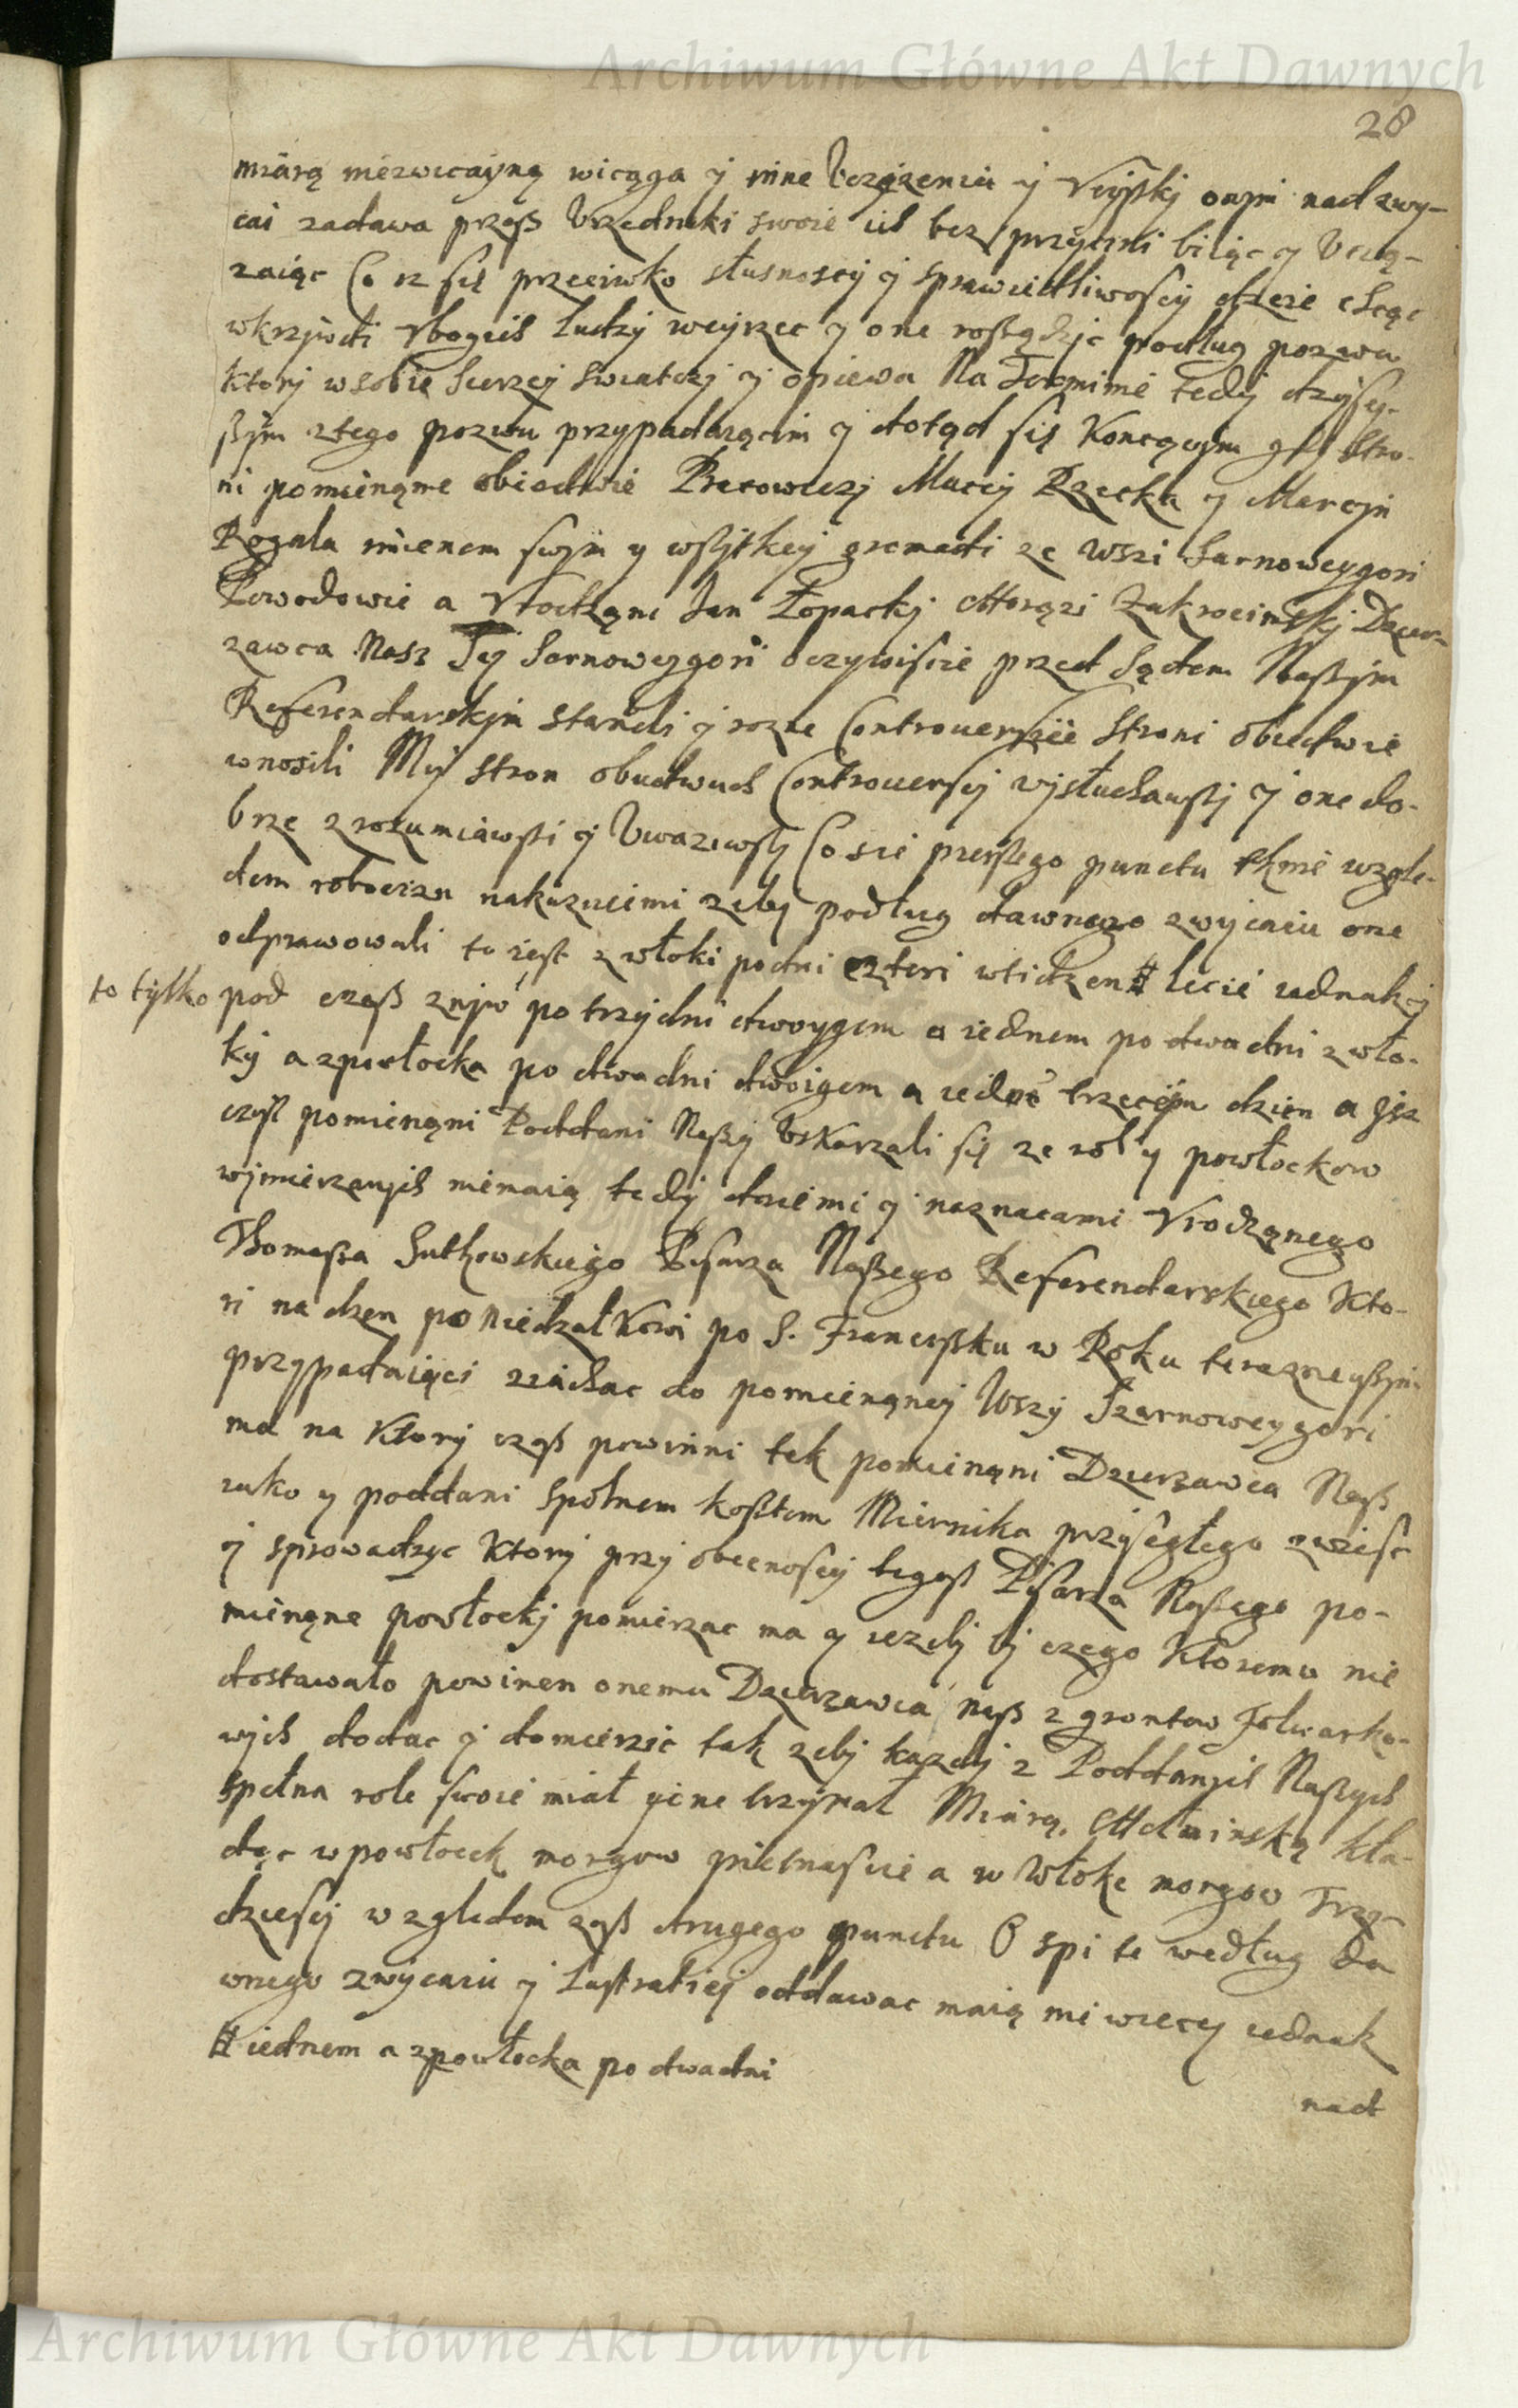 Archiwum Główne Akt Dawnych
28
miarą niezwicayną wiciąga y inne Vciążenia y Vcyski onym nad zwy-
cai zadawa przesz Vrzedniki swoie ich bez przyczini biiąc y Vcią-
zaiąc Co iz się przeciwko słusnoscy y sprawiedliwoscy dzeie chcąc
wkrzywdi Vbogich ludzy weyrzec y one rossądzic podług pozwu
ktory wsobie szerzey swiatczy y opiewa Na Terminie tedy dzysey-
szym ztego pozwu przypadaiącim y dotąd się Koncącym gdy stro-
ni pomienąne obiedwie Pracowiczy Maciey Rzecka y Marcyn
Rogala imienem swym y wszytkey gromadi ze wszi Sarnoweygori
Powodowie a Vrodząni Jan Łopacky Chorązi Zakrocimsky Dzier-
zawca Nasz Tey Sarnoweygori oczywiscie przed Sądem Naszym
Referendarskym staneli y rozne Controuersie stroni obiedwie
wnosili My stron obudwuch Controuersy wysłuchawszy y one do-
brze zrozumiawszi y Vwaziwszy Co sie pierszego punctu tknie wzgle-
dem robocizn nakazuiemi zeby podług dawnego zwyczaiu one
odprawowali to iest z włoki podni czteri wtidzen # lecie iednaky
to tylko pod czasz zniw po trzydni dwoygem a iednem po dwa dni zwło-
ky a zpowłocka po dwadni dwoigem a iedne trzecym dzien a Jsz
czesz pomienąni Poddani Naszy Vskarzali się ze rol y powłockow
wymierzanych niemaią tedy daiemi y naznacami Vrodząnego
Thomasza Sułkowskiego Pisarza Naszego Referendarskiego Kto-
ri na dzen poniedzałkowi po S. Franciszku w Roku teraznieyszym
przypadaięci ziachac do pomienąney Wszy Szarnoweygori
ma na Ktory czasz powinni tek pomienąni Dzierzawca Nasz
iako y poddani spolnem kosztem Miernika przysięgłego zwiesc
y sprowadzyc Ktory przy obecnoscy tegosz Pisarza Naszego po-
mienąne powłocky pomierzac ma y iezely by czego Ktoremu nie
dostawało powinen onemu Dzierzawca nasz z grontow Folwarko-
wych dodac y domierzic tak zeby kazdy z Poddanych Naszych
spełna role swoie miał y ine trzymał Miarą Chełminską kła-
dąc wpowłocek morgow pietnascie a w Włoke morgow Trzy-
dziesy wzgledem zasz drugego punctu O spi te według da
wnego zwyczaiu y Lustratiey oddawac maią nie wiecy iednak
# iednem a zpowłocka po dwadni
nad
Archiwum Główne Akt Dawnych